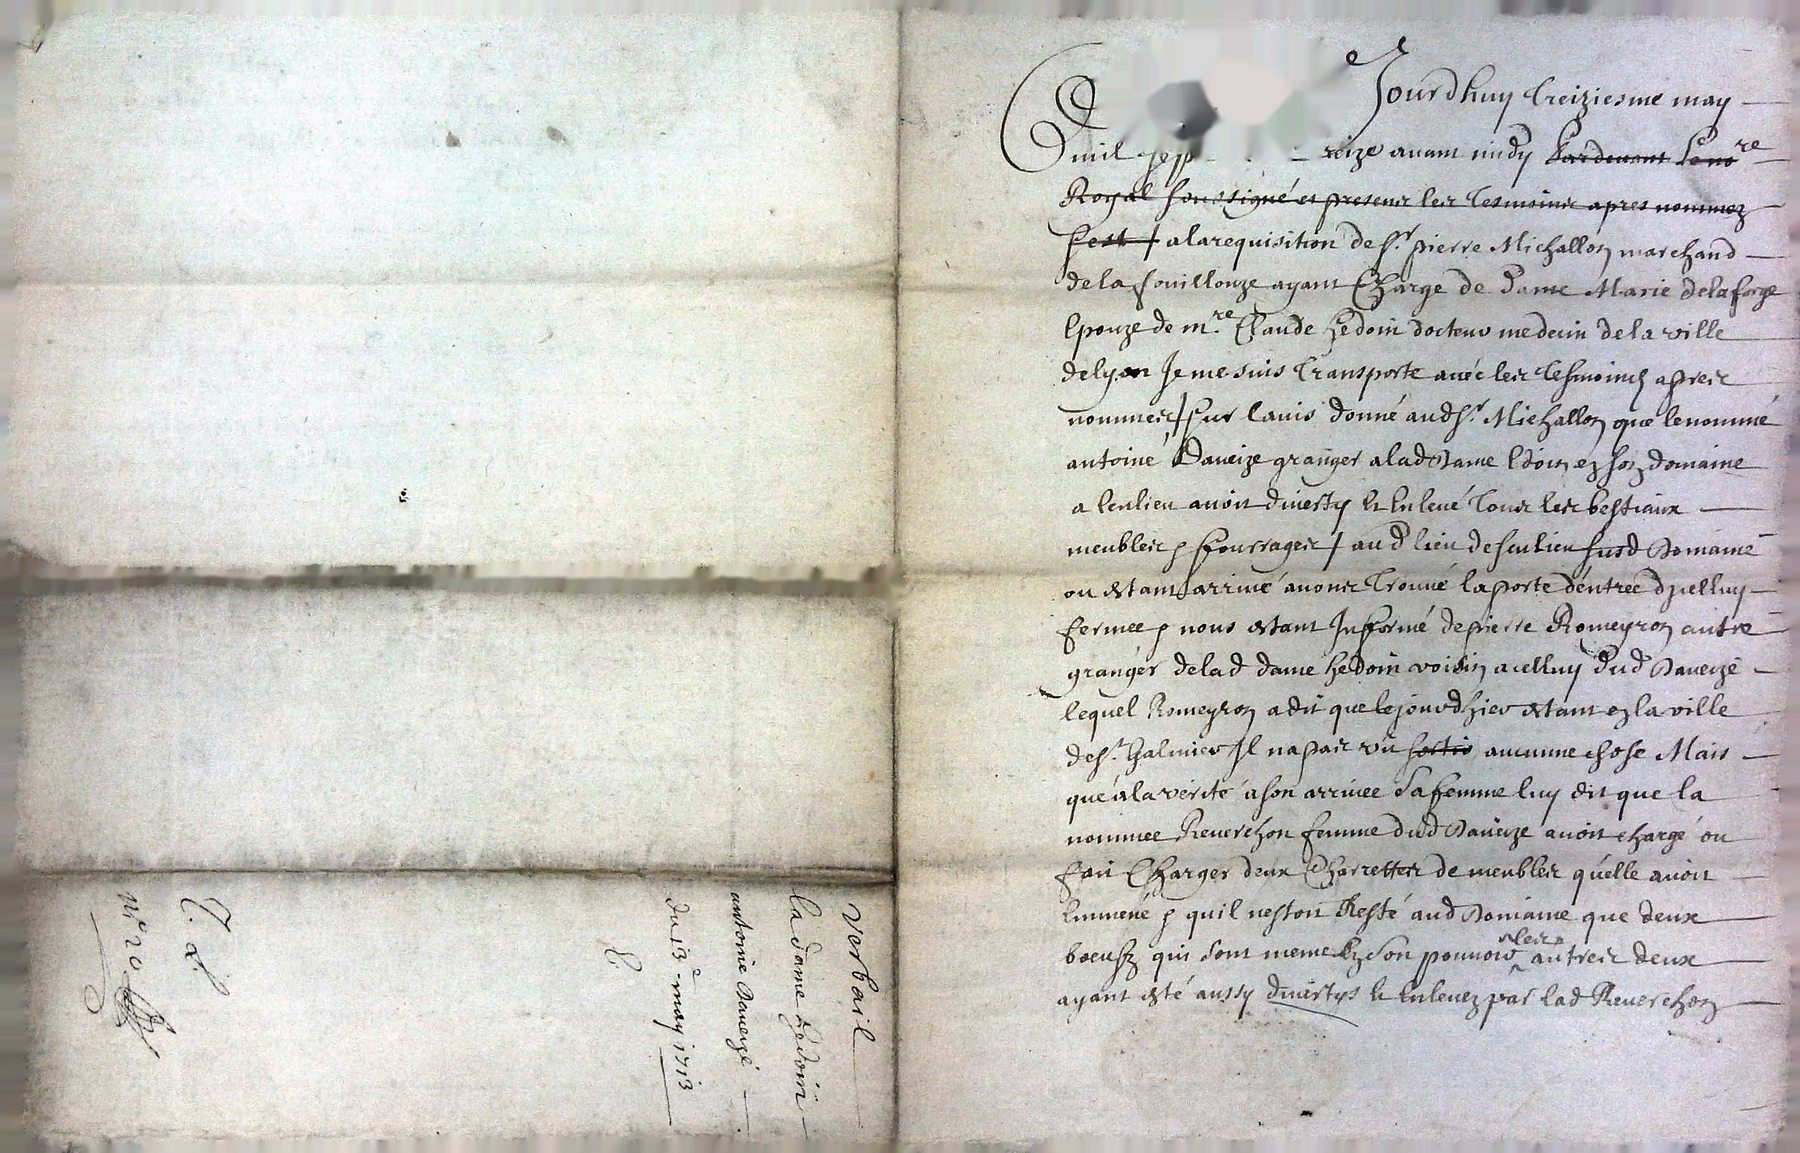 Jourdhuy treiziesme may
mil sep reize avant midy pardevant le no.re
Royal soussigné et presens les tesmoins apres nommez
sest / a la requisition de sr. pierre Michallon marchand
de la fouillouze ayant charge de dame Marie delaforge
Epouze de mre. Claude hedoin docteur medecin de la ville
de lyon Je me suis transporte avéc les tesmoins apres
nommes / sur lavis donné aud sr. Michallon que le nommé
antoine Daveize granger a lad dame Edoin en son domaine
a lenlieu avoit diverty et Enlevé tous les bestiaux
meubles & fourrages / aud lieu de susd Domaine
ou estant arrivé avons trouvé la porte déntree dycelluy
fermee & nous estant Informé de pierre Romeyron autre
granger de lad dame hedoin voisin a celluy dud Daveize
lequel Romeyron a dit que le jourdhier estant en la ville
de st. Galmier Il na pas vû sortir aucunne chose Mais
qué a la vérité a son arrivee sa femme luy dit que la
nommee Reverchon femme dud Daveize avoit chargé ou
fait Charger deux Charrettes de meubles quélle avoit
Emmené & quil nestoit Resté aud Domaine que deux
boeufz qui sont meme En son pouvoir les autres deux
ayant esté aussy divertys et Enlevez par lad Reverchon
verbail
la dame hedoin
antoine Daveizé
du 13e may 1713
E
C. L.
nro.